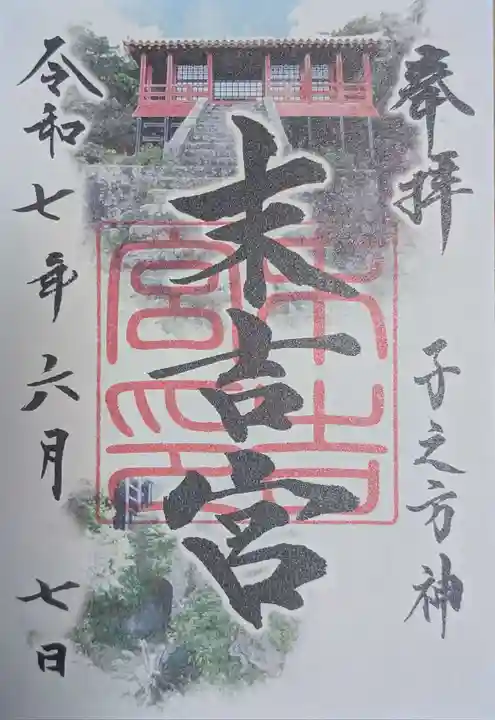 奉拝
子之方神
末吉宮
末吉宮印
令和七年六月七日